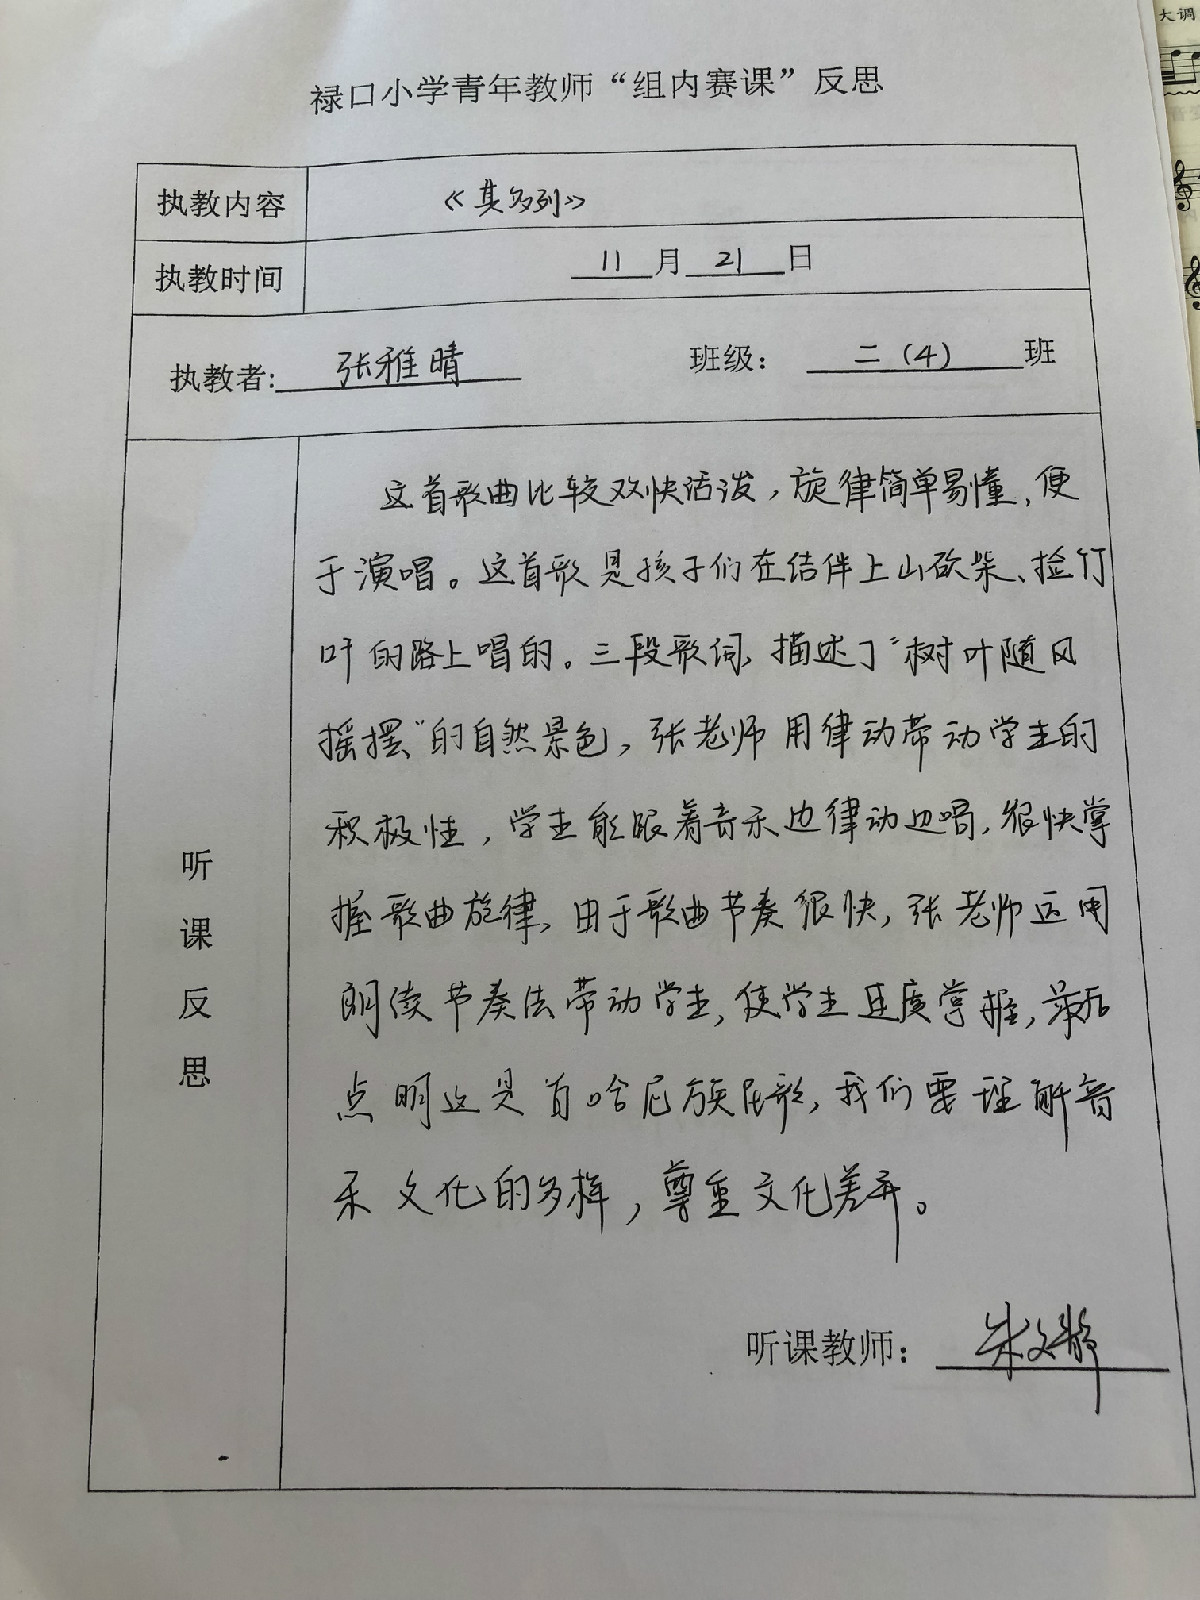 禄口小学青年教师“组内赛课”反思
执教内容 《其多列》
执教时间 11月21日
执教者: 张雅晴 班级: 二(4)班
听课反思
这首歌曲比较欢快活泼,旋律简单易懂,便
于演唱。这首歌是孩子们在结伴上山砍柴、捡竹
叶的路上唱的。三段歌词,描述了“树叶随风
摇摆”的自然景色,张老师用律动带动学生的
积极性,学生能跟着音乐边律动边唱,很快掌
握歌曲旋律,由于歌曲节奏很快,张老师运用
朗读节奏法带动学生,使学生迅速掌握,最后
点明这是首哈尼族民歌,我们要理解音
乐文化的多样,尊重文化差异。
听课教师: 朱文静
大调